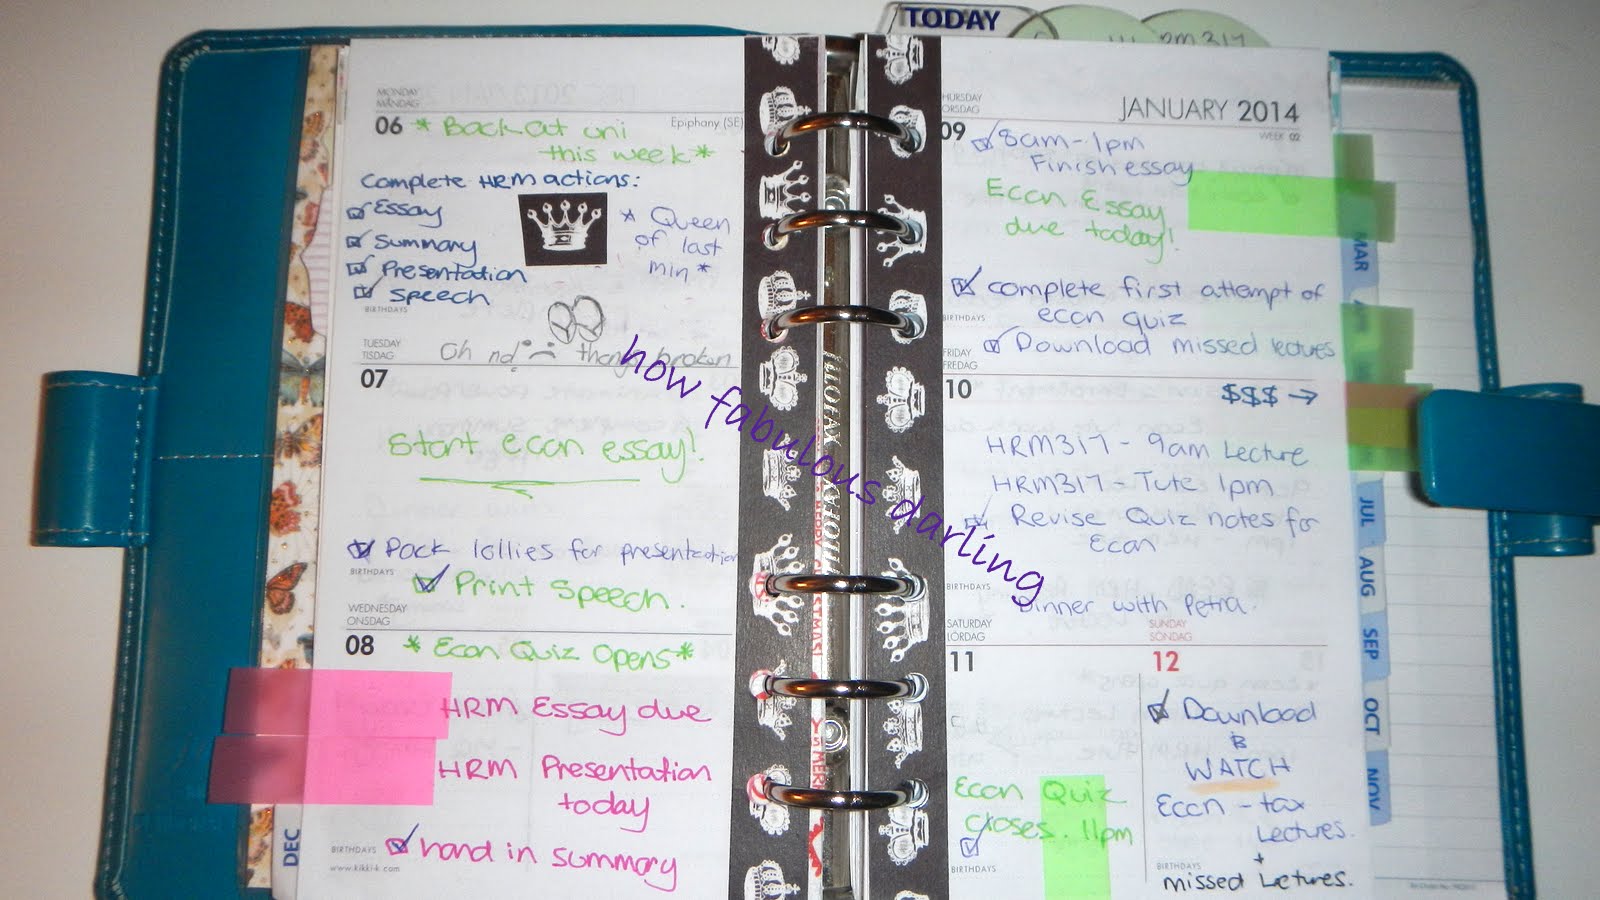 TODAY
RM317
MONDAY
MÅNDAG
06 * Back at uni
Epiphany (SE)
this week *
Complete HRM actions:
Essay
Summary
Presentation
Speech
* Queen
of last
min *
BIRTHDAYS
TUESDAY
TISDAG
Oh no! thongs broken
07
Start econ essay!
Pack lollies for presentation
BIRTHDAYS
Print Speech.
WEDNESDAY
ONSDAG
08 * Econ Quiz Opens *
HRM Essay due
HRM Presentation
today
BIRTHDAYS
hand in summary
www.kikki-k.com
DEC
how fabulous darling
HURSDAY
ORSDAG
JANUARY 2014
WEEK 02
09
8am - 1pm
Finish essay
Econ Essay
due today!
Complete first attempt of
econ quiz
BIRTHDAYS
Download missed lectures
FRIDAY
FREDAG
10
$$$ →
HRM317 - 9am Lecture
HRM317 - Tute 1pm
Revise Quiz notes for
Econ
BIRTHDAYS
Dinner with Petra.
SATURDAY
LÖRDAG
11
Econ Quiz
closes. 11pm
BIRTHDAYS
SUNDAY
SÖNDAG
12
Download
&
WATCH
Econ - tax
Lectures.
+
missed Lectures.
BIRTHDAYS
MAR
JUL
AUG
SEP
OCT
NOV